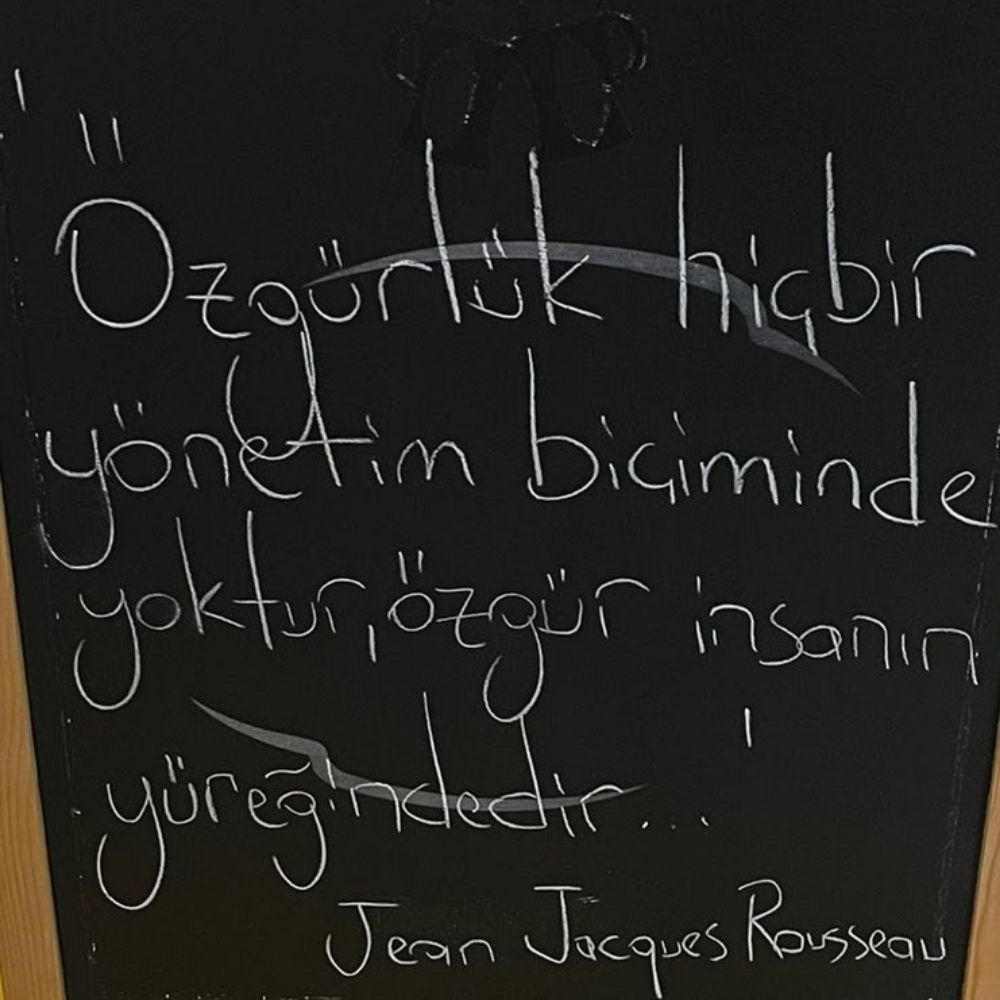 'Özgürlük hiçbir
yönetim biçiminde
yoktur, özgür insanın
yüreğindedir...'
Jean Jacques Rousseau